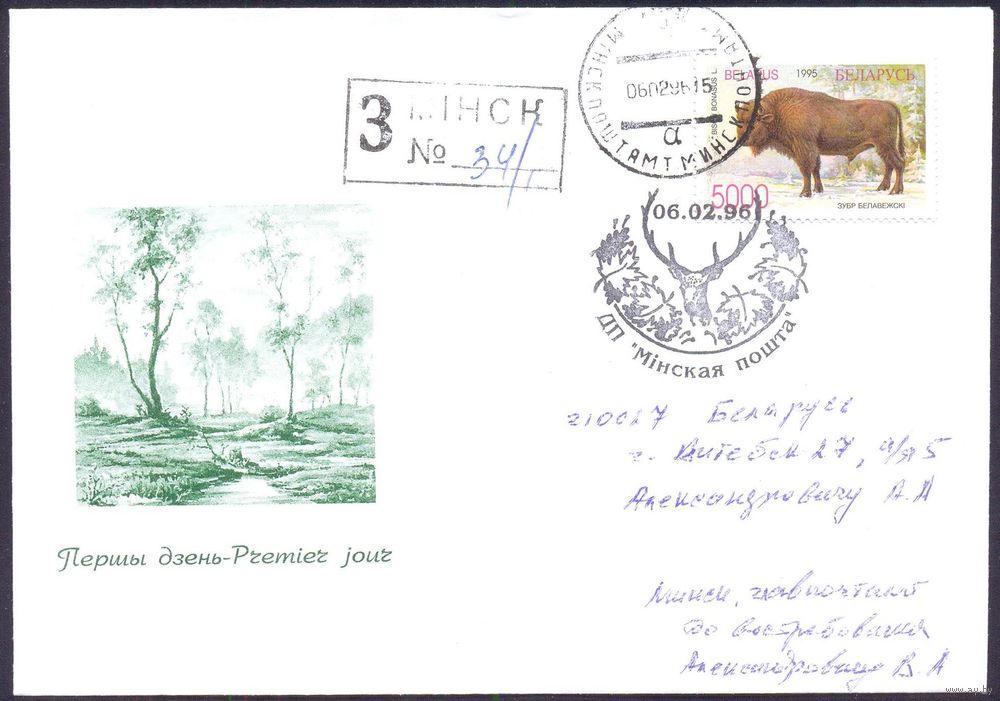 З МІНСК
№ 34/1
МІНСК ПОШТАМТ МИНСК ПОЧТАМТ
06029615
а
BELARUS 1995 БЕЛАРУСЬ
BISON BONASUS L.
5000
ЗУБР БЕЛАВЕЖСКІ
06.02.96
ДП "Мінская пошта"
210027 Беларусь
г. Витебск 27, а/я 5
Александровичу А.А
Першы дзень-Premier jour
Минск, главпочтамт
до востребования
Александровичу В.А
www.ay.by